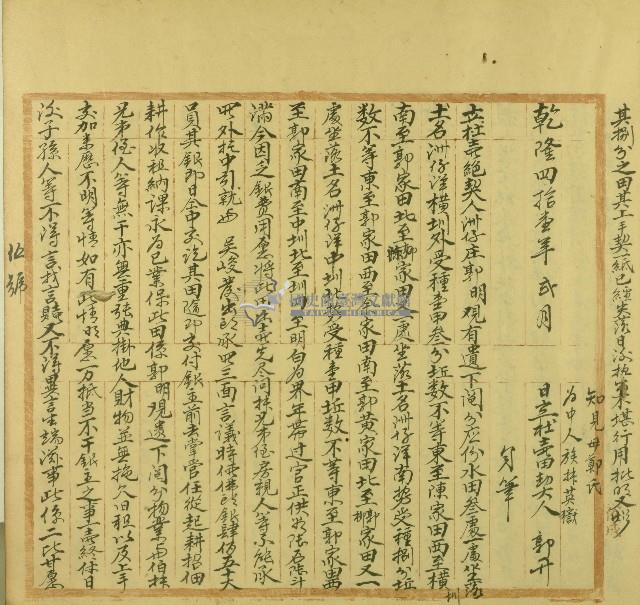 其捌分之田其上手契一紙已經失落日後執出不堪行用批明又照
知見母鄭氏
為中人族叔其嶽
日立杜賣田契人 郭丹
代筆
乾隆四拾壹年弍月
立杜賣絕契人洲仔庄郭明觀有遺下鬮分應份水田叁處一處坐落
土名洲仔洋橫圳外受種壹甲叁分坵数不等東至陳家田西至橫圳
南至郭家田北至陳家田一處坐落土名洲仔洋南勢受種捌分坵
数不等東至郭家田西至郭家田南至郭黃家田北至郭家田又一
處坐落土名洲仔洋中圳北受種壹甲坵数不等東至郭家田西
至郭家田南至中圳北至圳四至明白為界年帶过官正供谷陸石陸斗
滿今因乏銀費用愿將此田出賣先尽问抹兄弟侄房親人等不能承
受外托中引就与 吳峻觀出頭承買三面言議時價佛頭銀肆佰五大
員其銀即日仝中交訖其田隨即交付銀主前去掌管任從起耕招佃
耕作收租納課永為己業保此田係郭明觀遺下鬮分物業与伯叔
兄弟侄人等無干亦無重張典掛他人財物並無拖欠旧租以及上手
交加來歷不明等情如有此情明愿一力抵当不干銀主之事一賣終休日
後子孫人等不得言找言贖又不得異言生端滋事此係二比甘愿
伍號
國史館臺灣文獻館
TAIWAN HISTORICA